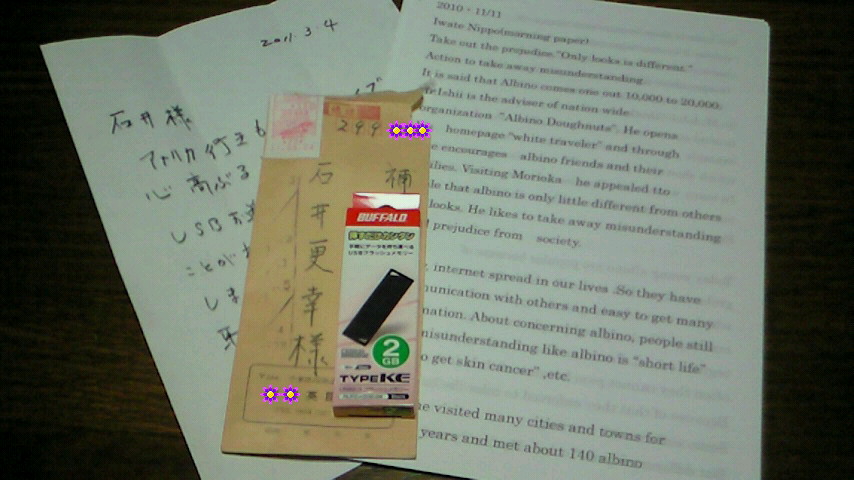 2011.3.4
石井様
アフリカ行きも
心高ぶる
USB
ことが
しま
299
石井更幸様
BUFFALO
挿すだけカンタン
手軽にデータを持ち運べる
USBフラッシュメモリー
2
GB
TYPE KE
Black
2010・11/11
Iwate Nippo(morning paper)
Take out the prejudice."Only looks is different."
Action to take away misunderstanding
It is said that Albino comes one out 10,000 to 20,000.
Mr Ishii is the adviser of nation wide
organization "Albino Doughnuts". He opens
homepage "white traveler" and through
encourages albino friends and their
Visiting Morioka he appealed tto
that albino is only little different from others
looks. He likes to take away misunderstanding
prejudice from society.
internet spread in our lives .So they have
with others and easy to get many
About concerning albino, people still
misunderstanding like albino is "short life"
o get skin cancer" ,etc.
visited many cities and towns for
years and met about 140 albino